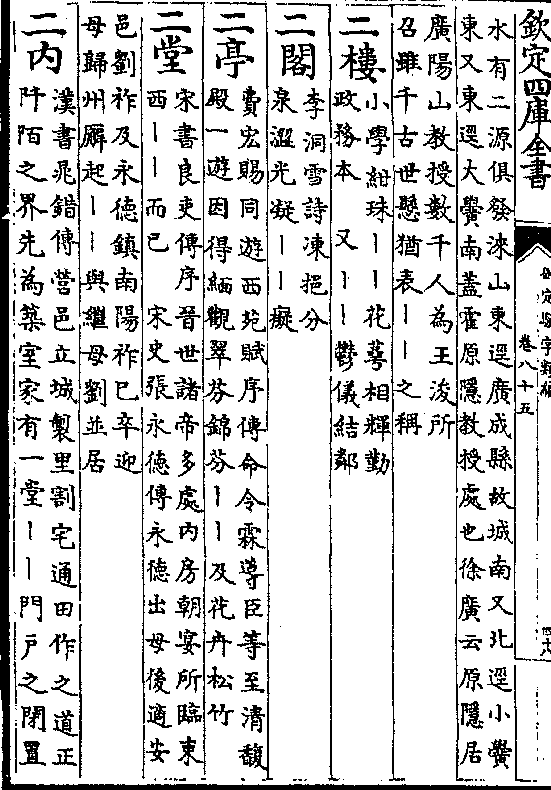 欽定四庫全書
卷八十五
水有二源俱發淶山東逕廣成縣故城南又北逕小黌
東又東逕大黌南蓋霍原隱教授處也徐廣云原隱居
廣陽山教授數千人為王浚所
召雖千古世懸猶表丨丨之稱
二樓
小學紺珠丨丨花萼相輝勤
政務本 又丨丨丨鬱儀結鄰
二閣
李洞雪詩凍挹分
泉澀光凝丨丨癡
二亭
費宏賜同遊西苑賦序傳命令霖導臣等至清馥
殿一遊因得緬觀翠芬錦芬丨丨及花卉松竹
二堂
宋書良吏傳序晉世諸帝多處內房朝宴所臨東
西丨丨而已 宋史張永德傳永德出母後適安
邑劉祚及永德鎮南陽祚已卒迎
母歸州廨起丨丨與繼母劉並居
二内
漢書晁錯傳營邑立城製里割宅通田作之道正
阡陌之界先為築室家有一堂丨丨門戶之閉置